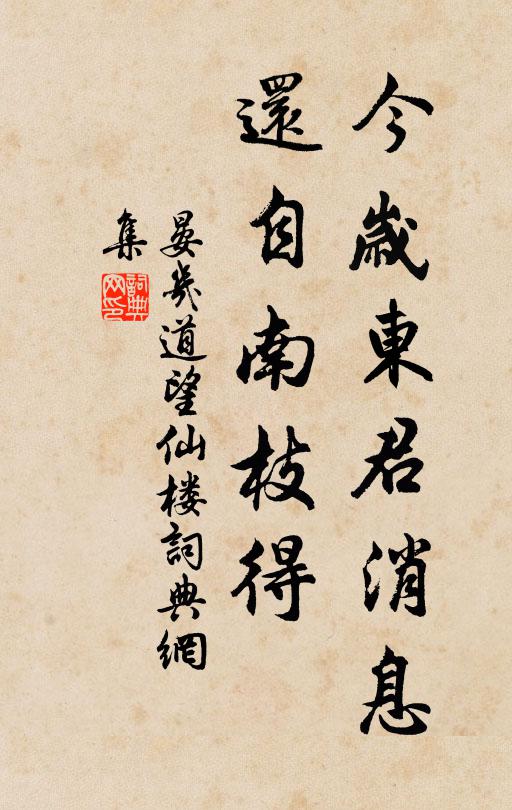 今歲東君消息
還自南枝得
晏幾道望仙楼詞典網
集
詞典网印